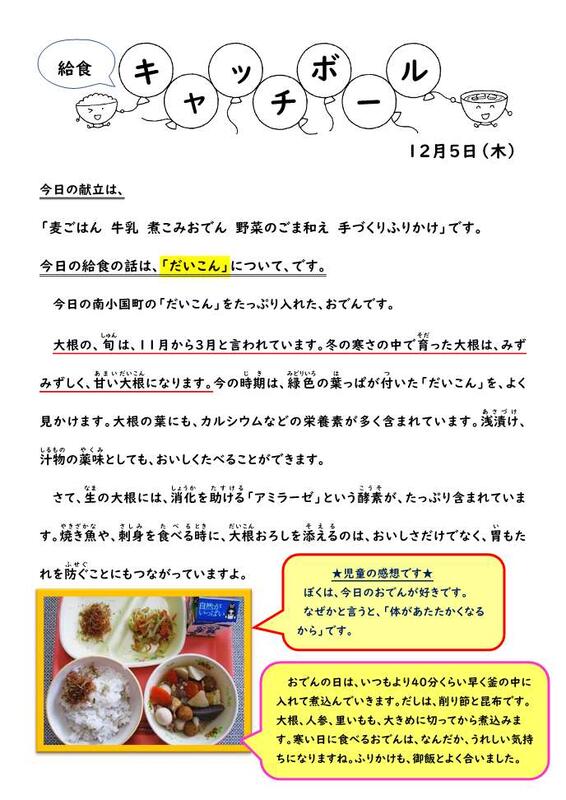 給食
キャッチボール
12月5日（木）
今日の献立は、
「麦ごはん 牛乳 煮こみおでん 野菜のごま和え 手づくりふりかけ」です。
今日の給食の話は、「だいこん」について、です。
今日の南小国町の「だいこん」をたっぷり入れた、おでんです。
大根の、旬は、11月から3月と言われています。冬の寒さの中で育った大根は、みず
みずしく、甘い大根になります。今の時期は、緑色の葉っぱが付いた「だいこん」を、よく
見かけます。大根の葉にも、カルシウムなどの栄養素が多く含まれています。浅漬け、
汁物の薬味としても、おいしくたべることができます。
さて、生の大根には、消化を助ける「アミラーゼ」という酵素が、たっぷり含まれていま
す。焼き魚や、刺身を食べる時に、大根おろしを添えるのは、おいしさだけでなく、胃もた
れを防ぐことにもつながっていますよ。
★児童の感想です★
ぼくは、今日のおでんが好きです。
なぜかと言うと、「体があたたかくなる
から」です。
自然がいっぱい。
おでんの日は、いつもより40分くらい早く釜の中に
入れて煮込んでいきます。だしは、削り節と昆布です。
大根、人参、里いもも、大きめに切ってから煮込みま
す。寒い日に食べるおでんは、なんだか、うれしい気持
ちになりますね。ふりかけも、御飯とよく合いました。